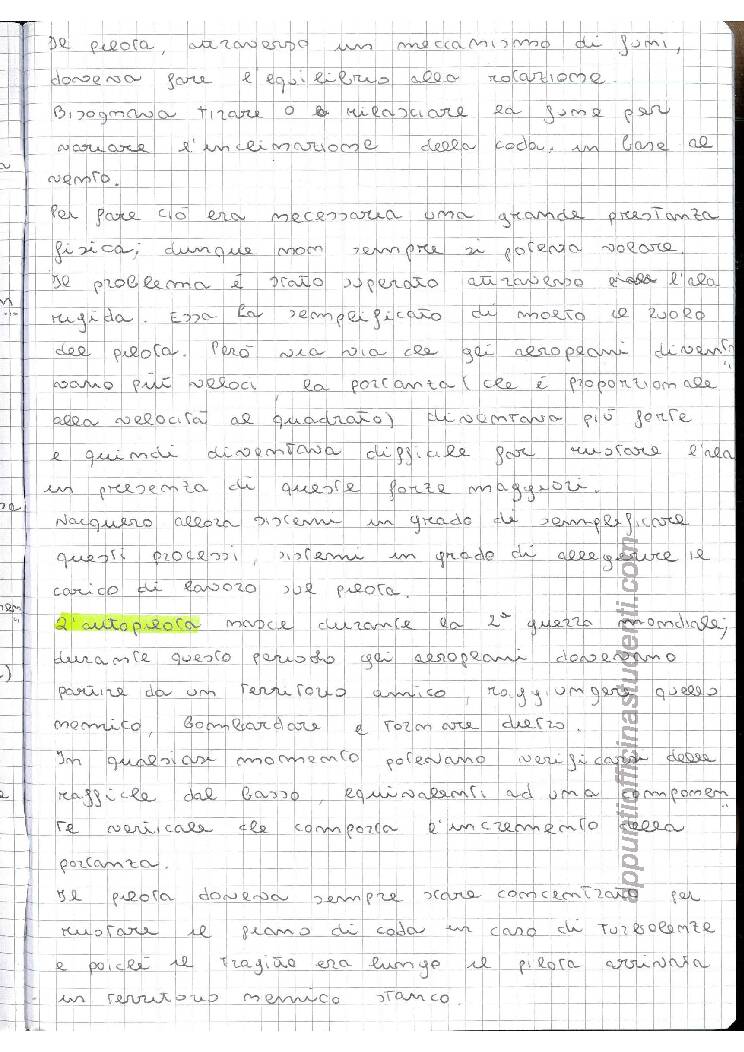 Il pilota, attraverso un meccanismo di funi,
doveva fare l'equilibrio alla rotazione.
Bisognava tirare o rilasciare la fune per
variare l'inclinazione della coda, in base al
vento.
Per fare ciò era necessaria una grande prestanza
fisica; dunque non sempre si poteva volare.
Il problema è stato superato attraverso l'ala
rigida. Essa ha semplificato di molto il ruolo
del pilota. Però via via che gli aeroplani divent
vano più veloci, la portanza (che è proporzionale
alla velocità al quadrato) diventava più forte
e quindi diventava difficile far ruotare l'ala
in presenza di queste forze maggiori.
Nacquero allora sistemi in grado di semplificare
questi processi, sistemi in grado di allegerire il
carico di lavoro sul pilota.
L'autopilota nasce durante la 2ª guerra mondiale;
durante questo periodo gli aeroplani dovevano
partire da un territorio amico, raggiungere quello
nemico, bombardare e tornare dietro.
In qualsiasi momento potevano verificarsi delle
raffiche dal basso, equivalenti ad una componen
te verticale che comporta l'incremento della
portanza.
Il pilota doveva sempre stare concentrato per
ruotare il piano di coda in caso di turbolenze
e poiché il tragitto era lungo il pilota arrivava
in territorio nemico stanco.
appuntiofficinastudenti.com